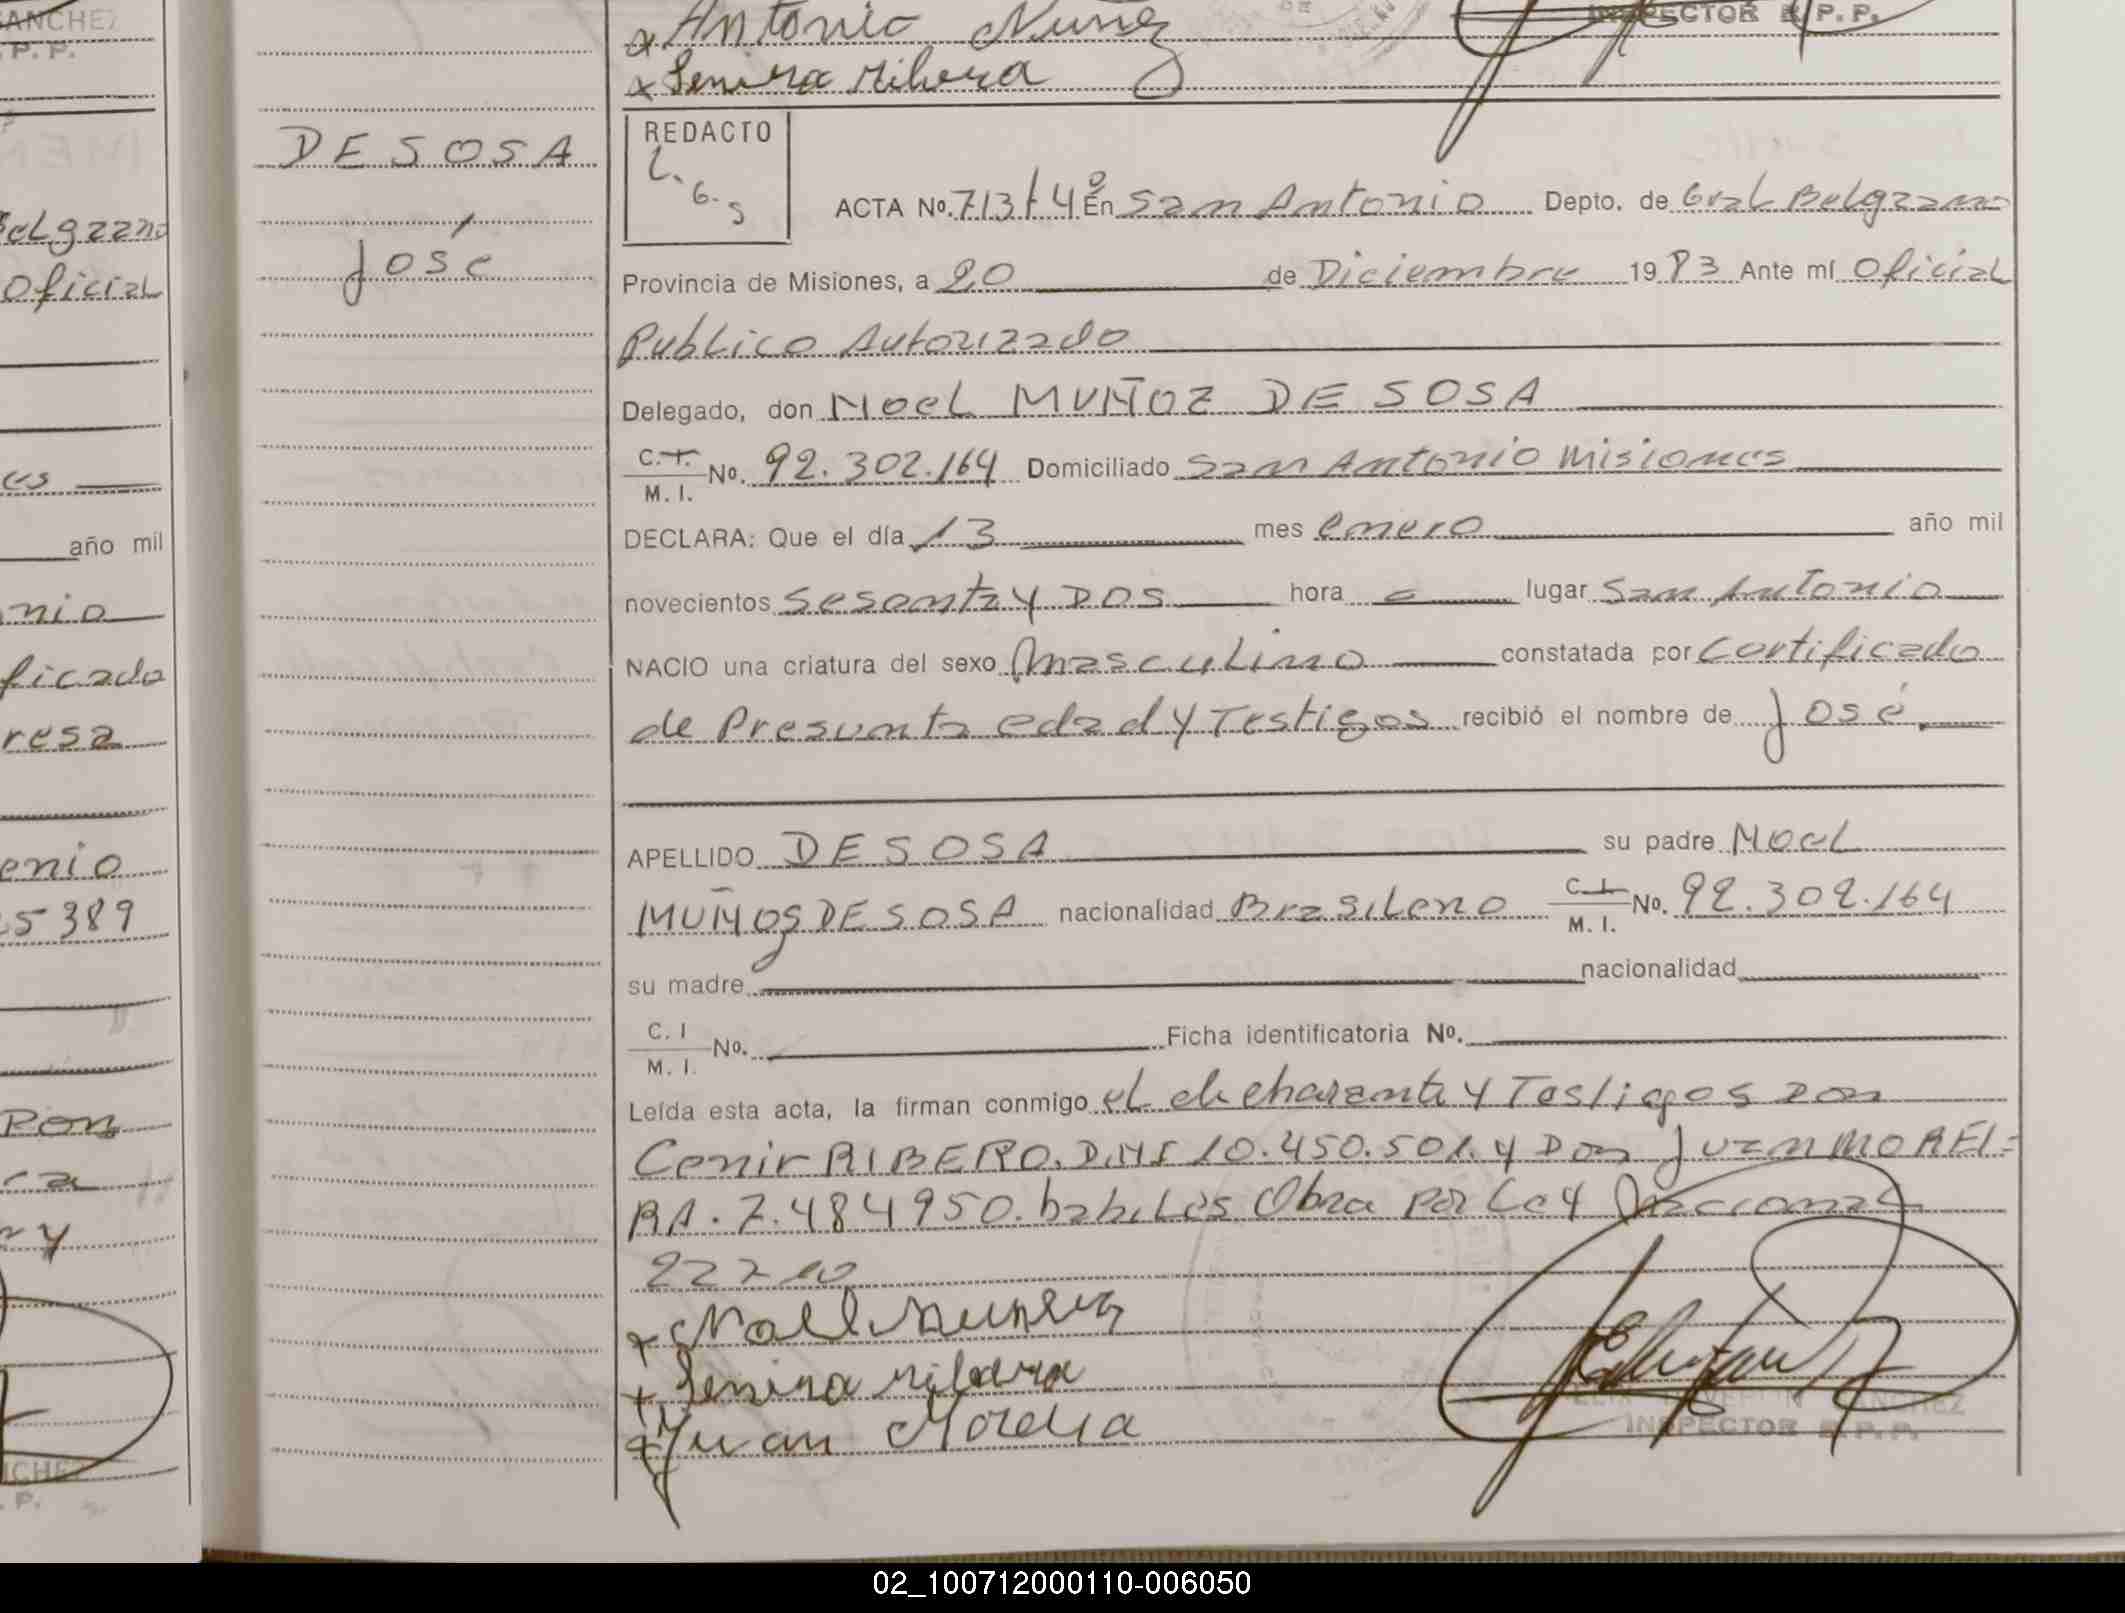 SANCHEZ
P. P.
elgrano
Oficial
es
año mil
nio
ficado
resa
enio
5389
Ron
ca
y
DE SOSA
José
Antonio Nuñez
Senira Ribera
INSPECTOR R. P. P.
REDACTO
L. G. S
ACTA Nº. 713 t 4º En San Antonio Depto. de Gral Belgrano
Provincia de Misiones, a 20 de Diciembre 1983 Ante mí Oficial
Publico Autorizado
Delegado, don Noel MUÑOZ DE SOSA
C.I. M. I. Nº. 92.302.164 Domiciliado San Antonio Misiones
DECLARA: Que el día 13 mes enero año mil
novecientos sesenta y Dos hora = lugar San Antonio
NACIO una criatura del sexo Masculino constatada por Certificado
de Presunta edad y Testigos recibió el nombre de José.
APELLIDO DE SOSA su padre Noel
MUÑOS DE SOSA nacionalidad Brasileno C.I. M. I. Nº. 92.302.164
su madre nacionalidad
C. I M. I. Nº. Ficha identificatoria Nº.
Leída esta acta, la firman conmigo el declarante y Testigos Don
Cenir RIBERO. D.N.I 10.450.501. y Don Juan MOREI=
RA. 7.484950. habiles Obra por Ley Nacional
22710
Senira ribera
Juan Moreira
SANCHEZ
INSPECTOR R. P. P.
02_100712000110-006050